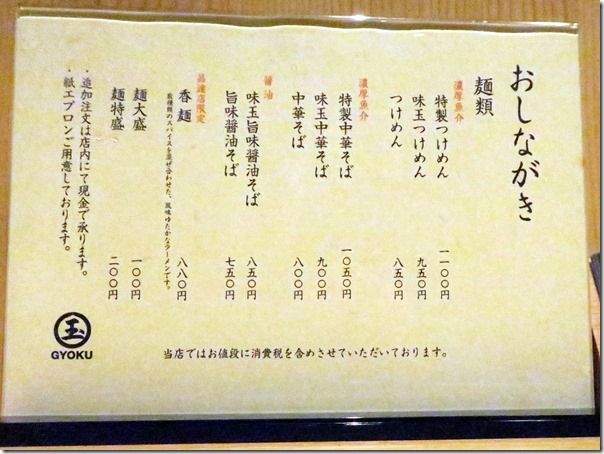 おしながき
麺類
濃厚魚介
特製つけめん 一一〇〇円
味玉つけめん 九五〇円
つけめん 八五〇円
濃厚魚介
特製中華そば 一〇五〇円
味玉中華そば 九〇〇円
中華そば 八〇〇円
醤油
味玉旨味醤油そば 八五〇円
旨味醤油そば 七五〇円
品達店限定
香麺 八八〇円
数種類のスパイスを混ぜ合わせた、風味ゆたかなラーメンです。
麺大盛 一〇〇円
麺特盛 二〇〇円
・追加注文は店内にて現金で承ります。
・紙エプロンご用意しております。
玉
GYOKU
当店ではお値段に消費税を含めさせていただいております。